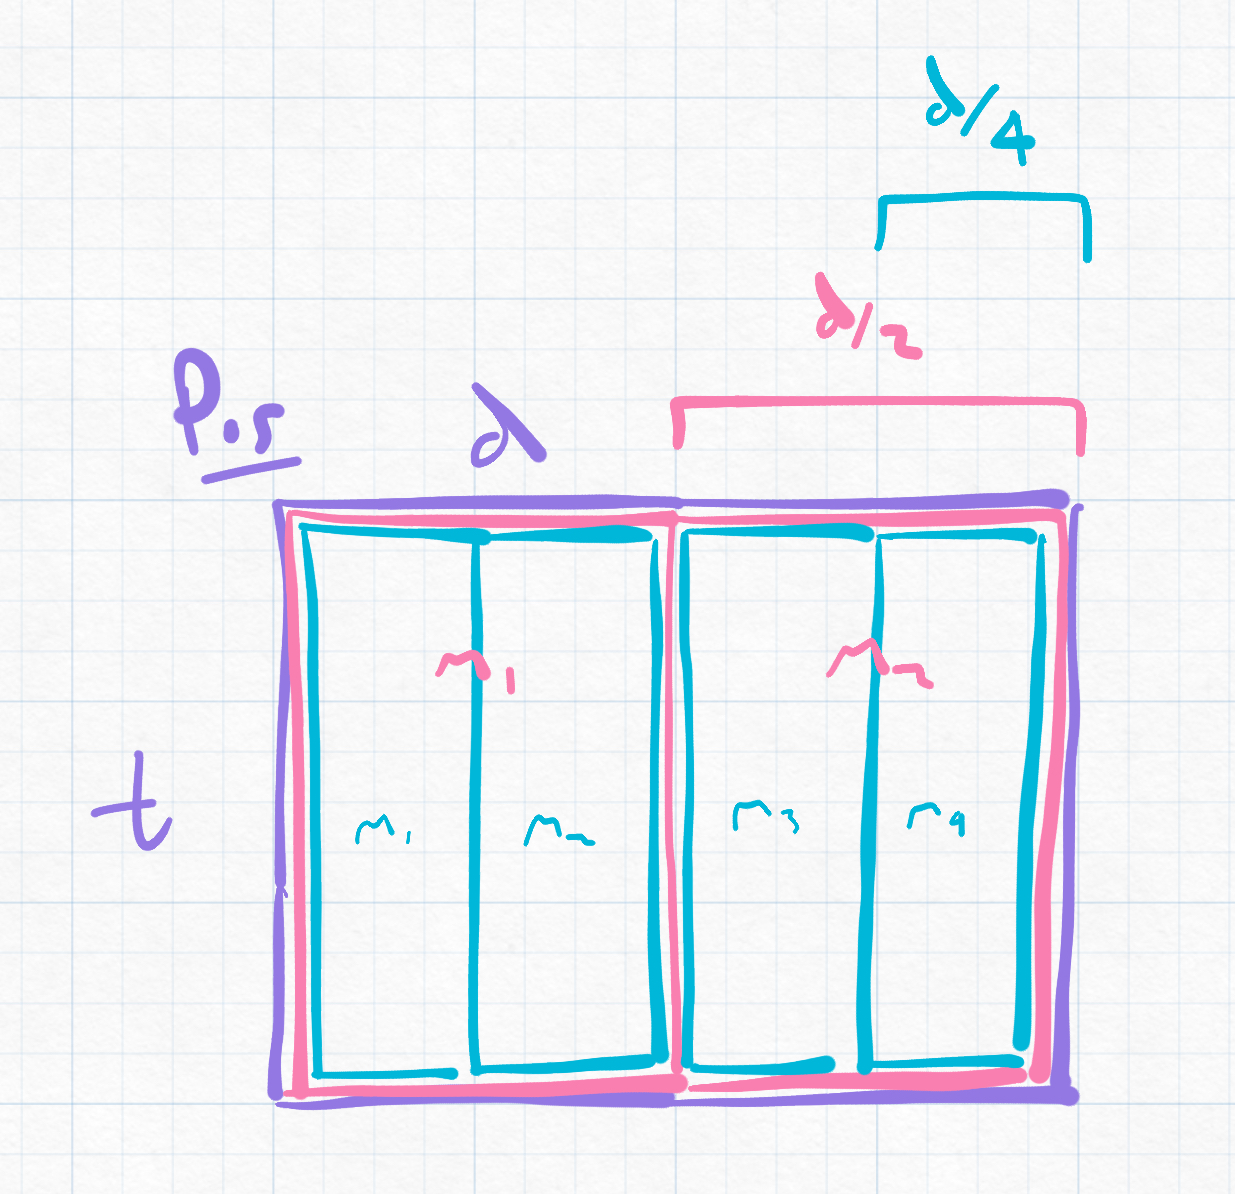 d/4
d/2
P.s
d
m1
m2
t
m1
m2
m3
m4